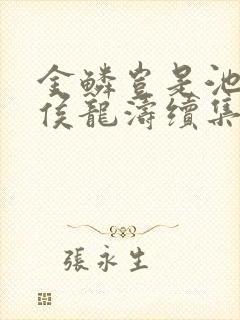 金鱗豈是池
侯龍濤續集
張永生